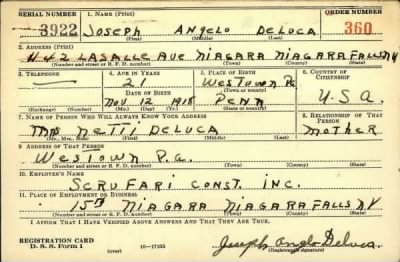 SERIAL NUMBER 1. NAME (Print) ORDER NUMBER
3922 JOSEPH ANGELO DELUCA 360
(First) (Middle) (Last)
2. ADDRESS (Print)
442 LASALLE AVE NIAGARA NIAGARA FALLS NY
(Number and street or R. F. D. number) (Town) (County) (State)
3. TELEPHONE 4. AGE IN YEARS 5. PLACE OF BIRTH 6. COUNTRY OF CITIZENSHIP
21 WESTOWN PA
DATE OF BIRTH (Town or county)
NOV 12 1918 PENN U.S.A.
(Exchange) (Number) (Mo.) (Day) (Yr.) (State or country)
7. NAME OF PERSON WHO WILL ALWAYS KNOW YOUR ADDRESS 8. RELATIONSHIP OF THAT PERSON
MRS NETTI DELUCA MOTHER
(Mr., Mrs., Miss) (First) (Middle) (Last)
9. ADDRESS OF THAT PERSON
WESTOWN P.A.
(Number and street or R. F. D. number) (Town) (County) (State)
10. EMPLOYER'S NAME
SCRUFARI CONST. INC.
11. PLACE OF EMPLOYMENT OR BUSINESS
15TH NIAGARA NIAGARA FALLS N.Y.
(Number and street or R. F. D. number) (Town) (County) (State)
I AFFIRM THAT I HAVE VERIFIED ABOVE ANSWERS AND THAT THEY ARE TRUE.
REGISTRATION CARD
D. S. S. Form 1 16-17105 Joseph Anglo Deluca
(Registrant's signature)